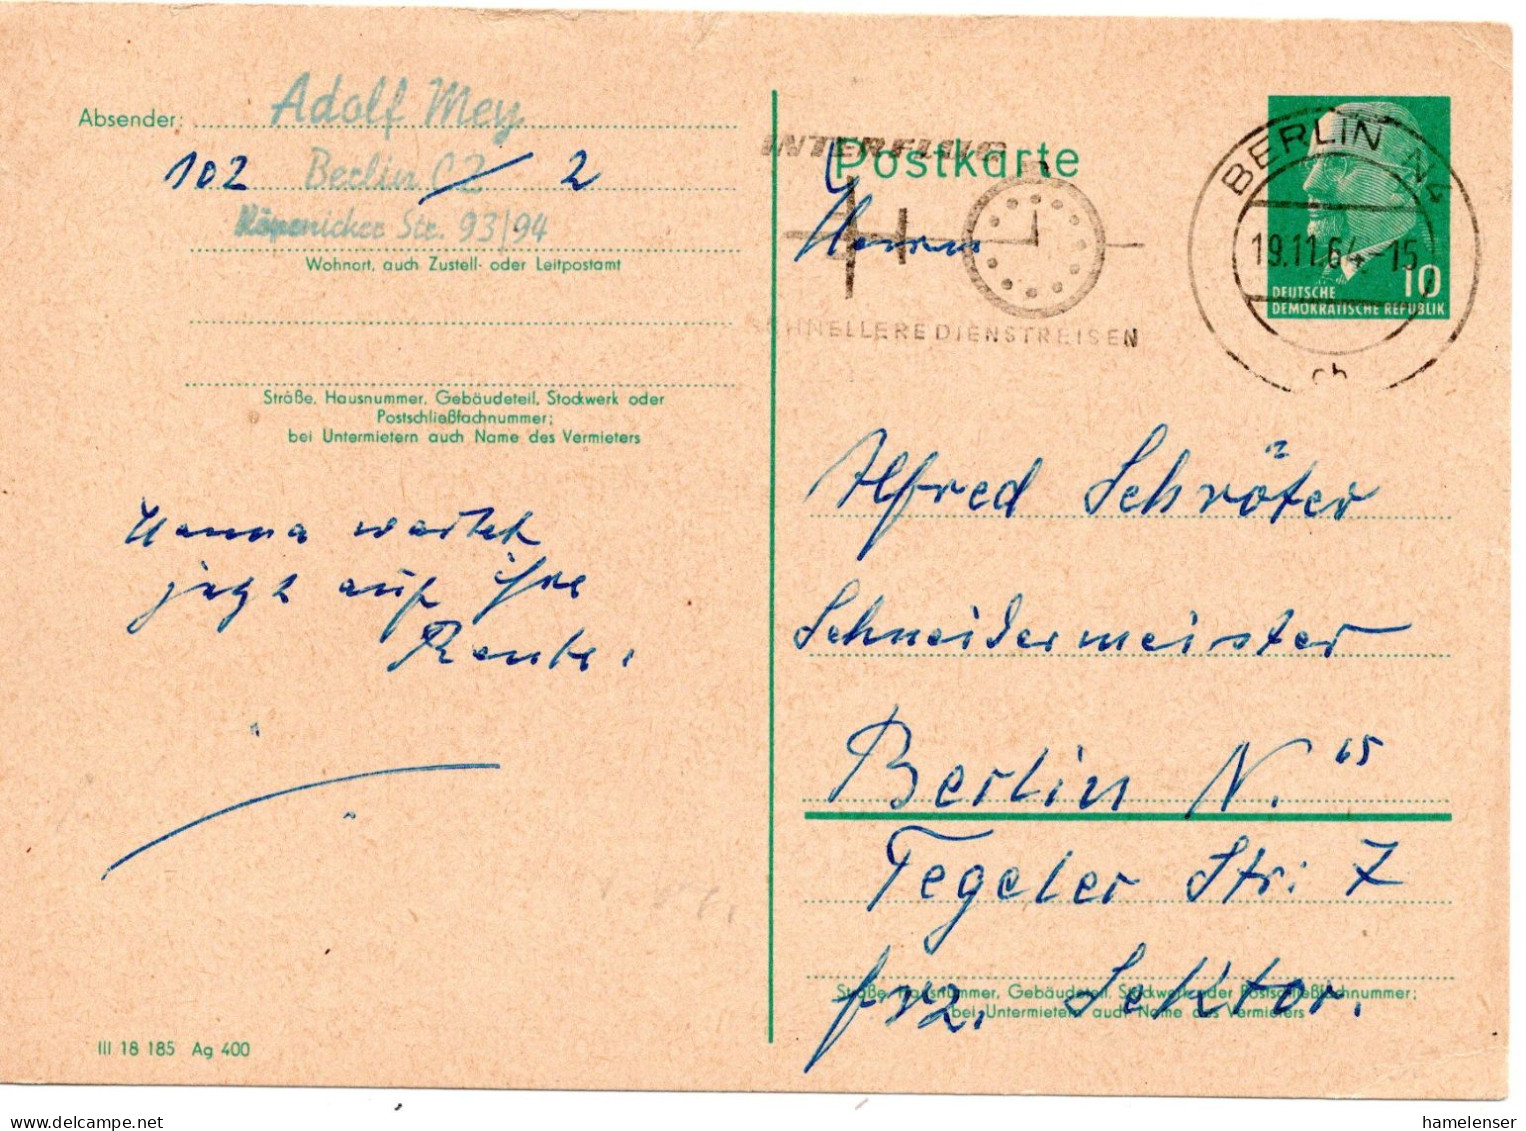 Absender: Adolf Mey
102 Berlin C2 2
Köpenicker Str. 93/94
Wohnort, auch Zustell- oder Leitpostamt
Straße, Hausnummer, Gebäudeteil, Stockwerk oder
Postschließfachnummer;
bei Untermietern auch Name des Vermieters
Hanna wartet
jetzt auf ihre
Rente.
III 18 185 Ag 400
Postkarte
INTERFLUG
SCHNELLERE DIENSTREISEN
BERLIN N4
19.11.64-15
cb
10
DEUTSCHE
DEMOKRATISCHE REPUBLIK
Herrn
Alfred Schröter
Schneidermeister
Berlin N. 65
Tegeler Str. 7
frz. Sektor.
Straße, Hausnummer, Gebäudeteil, Stockwerk oder Postschließfachnummer;
bei Untermietern auch Name des Vermieters
hamelenser